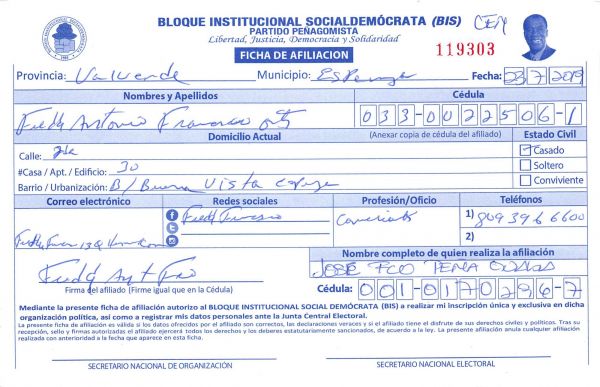 BLOQUE INSTITUCIONAL SOCIALDEMÓCRATA (BIS) CEN
PARTIDO PEÑAGOMISTA
Libertad, Justicia, Democracia y Solidaridad
FICHA DE AFILIACION
119303
Provincia: Valverde Municipio: Esperanza Fecha: 23/7/2019
Nombres y Apellidos Cédula
Freddy Antonio Francisco 033-0022506-1
Domicilio Actual (Anexar copia de cédula del afiliado) Estado Civil
Calle: Casado
#Casa / Apt. / Edificio: 30 Soltero
Barrio / Urbanización: B/ Buena Vista Conviviente
Correo electrónico Redes sociales Profesión/Oficio Teléfonos
Freddy Francisco 1) 809 396 6600
2)
Nombre completo de quien realiza la afiliación
JOSE FCO PEÑA
Firma del afiliado (Firme igual que en la Cédula) Cédula: 001-0170296-7
Mediante la presente ficha de afiliación autorizo al BLOQUE INSTITUCIONAL SOCIAL DEMÓCRATA (BIS) a realizar mi inscripción única y exclusiva en dicha
organización política, así como a registrar mis datos personales ante la Junta Central Electoral.
La presente ficha de afiliación es válida si los datos ofrecidos por el afiliado son correctos, las declaraciones veraces y si el afiliado tiene el disfrute de sus derechos civiles y políticos. Tras su
recepción, sello y firmas autorizadas el afiliado ejercerá todos los derechos y los deberes estatutariamente sancionados, de acuerdo a la ley. La presente afiliación anula cualquier afiliación
realizada con anterioridad a la fecha que aparece en esta ficha.
SECRETARIO NACIONAL DE ORGANIZACIÓN SECRETARIO NACIONAL ELECTORAL